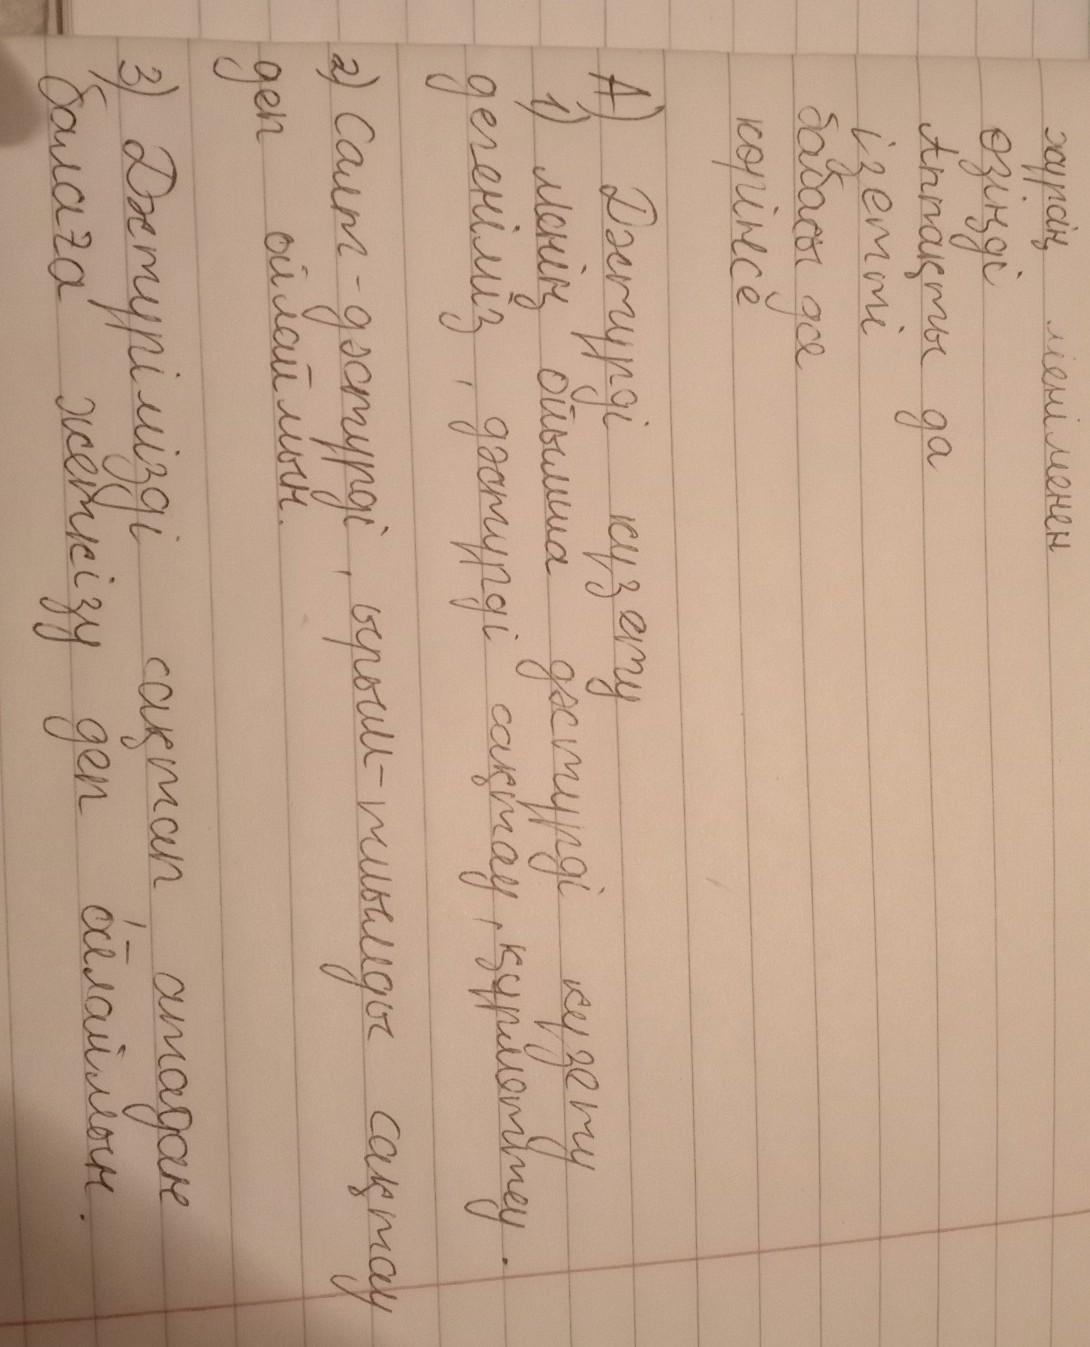 жүрдің менменен
өзіңді
Аппақты да
ізетті
бабасы да
көрінсе
А) Дәстүрді күзету
1) менің ойымша дәстүрді күзету
дегеніміз, дәстүрді сақтау, құрметтеу.
2) Салт-дәстүрді, ырым-тыымды сақтау
деп ойлаймын.
3) Дәстүрімізді сақтап атадан
балаға жеткізу деп ойлаймын.